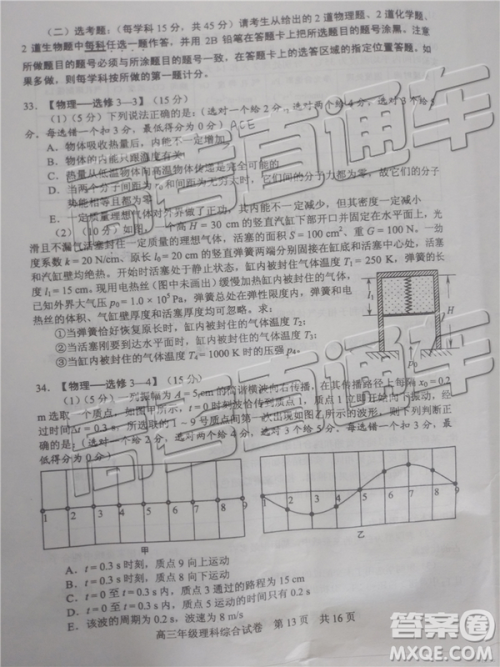 (二)选考题:(每学科15分,共45分)请考生从给出的2道物理题、2道化学题、
2道生物题中每科任选一题作答,并用2B铅笔在答题卡上把所选题目的题号涂黑。注意
所做题目的题号必须与所涂题目的题号一致,在答题卡上的选答区域的指定位置答题。如
果多做,则每学科按所做的第一题计分。
33.【物理——选修3—3】(15分)
(1)(5分)下列说法正确的是:(选对一个给2分,选对两个给4分,选对3个给5
分,每选错一个扣3分,最低得分为0分) ACE
A.物体吸收热量后,内能不一定增加
B.物体的内能只跟温度有关
C.热量从低温物体向高温物体传递是完全可能的
D.当两个分子间距为r₀和间距为无穷大时,它们间的分子力都为零,故它们的分子
势能相等且都为零
E.一定质量理想气体对外界做了正功,其内能不一定减少,但其密度一定减小
(2)(10分)一个高H=30 cm的竖直汽缸下部开口并固定在水平面上,光
滑且不漏气活塞封住一定质量的理想气体,活塞的面积S=100 cm²、重G=100 N,一劲
度系数k=20 N/cm、原长l₀=20 cm的竖直弹簧两端分别固接在缸底和活塞中心处,活塞
和缸壁均绝热,开始时活塞处于静止状态,缸内被封住气体温度T₁=250 K,弹簧的长
度l₁=15 cm,现用电热丝(图中未画出)缓慢加热缸内气体,直到被封气体温度
已知外界大气压p₀=1.0×10⁵Pa,弹簧总处在弹性限度内,弹簧和电
热丝的体积、气缸壁厚度和活塞厚度均可忽略。求:
①当弹簧恰好恢复原长时,缸内被封住的气体温度T₂;
②当活塞刚要到达水平面时,缸内被封住的气体温度T₃;
③当缸内被封住气体温度T₄=1000 K时的压强p₄。
l₁
H
p₀
34.【物理——选修3—4】(15分)
(1)(5分)一列振幅为A=5 cm的简谐横波向右传播,在其传播路径上每隔x₀=0.2
m选取一个质点,如图甲所示,t=0时刻波恰好传到质点1,质点1立即
过时间Δt=0.3 s,所选取的1~9号质点间第一次出现如图乙所示的波形,则下列判断正
确的是:(选对一个给2分,选对两个给4分,选对3个给5分,每选错一个扣3分,最
低得分为0分)
1 2 3 4 5 6 7 8 9
甲
1 2 3 4 5 6 7 8 9
乙
A.t=0.3 s时刻,质点9向上运动
B.t=0.3 s时刻,质点8向下运动
C.t=0至t=0.3 s内,质点3通过的路程为15 cm
D.t=0至t=0.3 s内,质点5运动的时间只有0.2 s
E.该波的周期为0.2 s,波速为8 m/s
高三年级理科综合试卷 第13页 共16页
高考直通车
高考直通车
答案圈
MXQE.COM